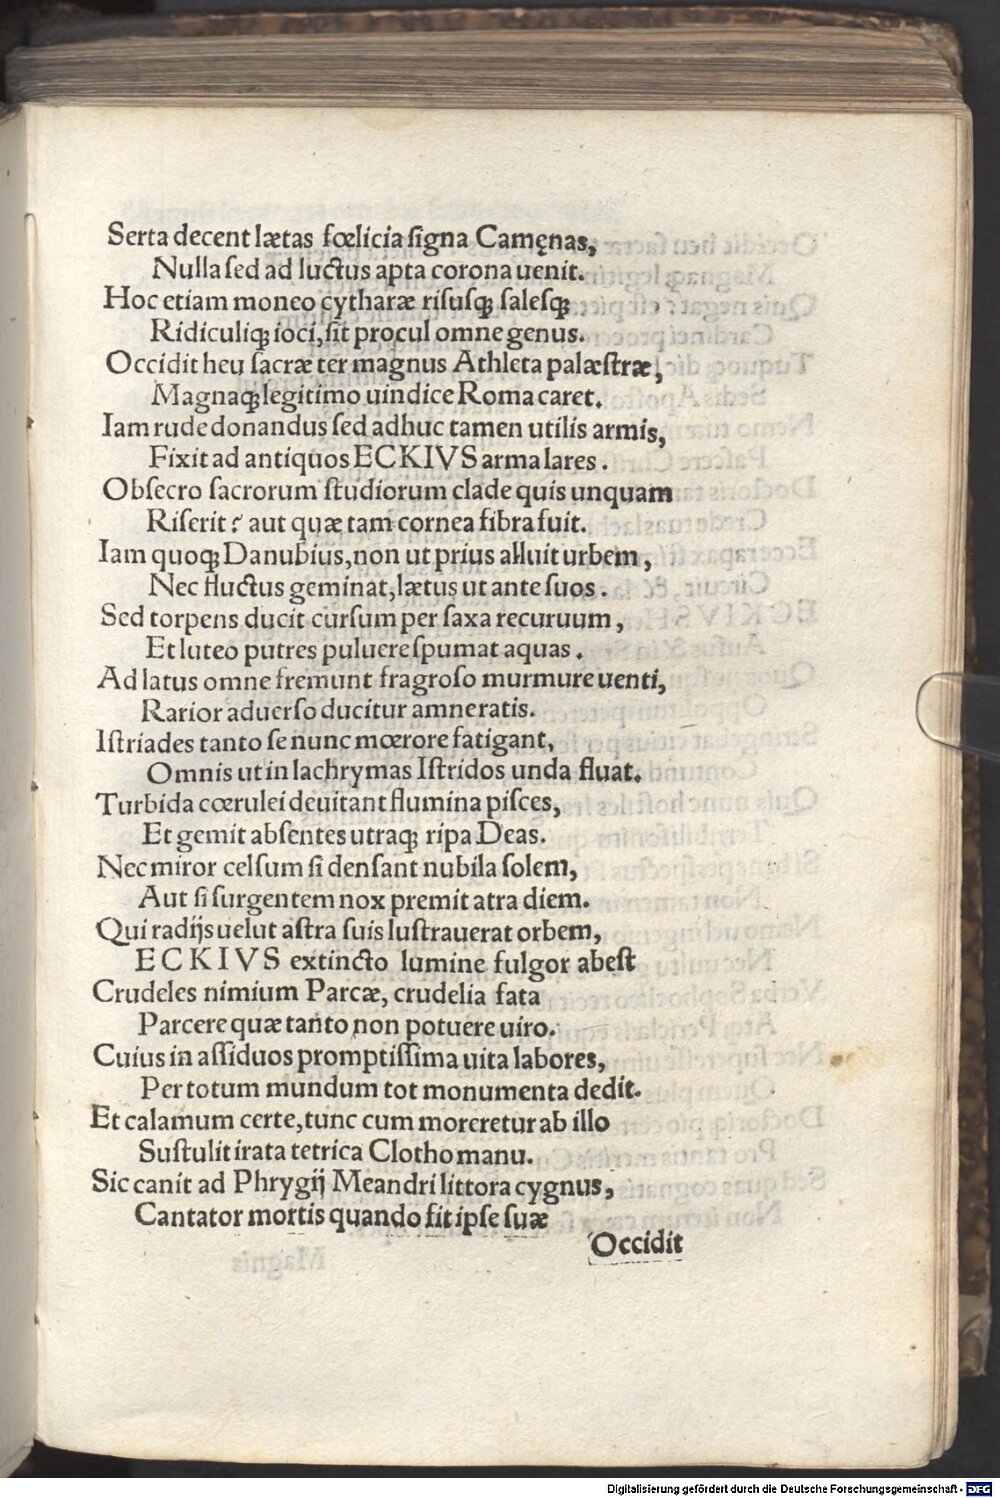 Serta decent lætas fœlicia ſigna Camęnas,
Nulla ſed ad luctus apta corona uenit.
Hoc etiam moneo cytharæ riſusq; ſalesq;
Ridiculiq; ioci, ſit procul omne genus.
Occidit heu ſacræ ter magnus Athleta palæſtræ,
Magnaq; legitimo uindice Roma caret.
Iam rude donandus ſed adhuc tamen utilis armis,
Fixit ad antiquos ECKIVS arma lares.
Obſecro ſacrorum ſtudiorum clade quis unquam
Riſerit? aut quæ tam cornea fibra fuit.
Iam quoq; Danubius, non ut prius alluit urbem,
Nec fluctus geminat, lætus ut ante ſuos.
Sed torpens ducit curſum per ſaxa recuruum,
Et luteo putres puluere ſpumat aquas.
Ad latus omne fremunt fragroſo murmure uenti,
Rarior aduerſo ducitur amne ratis.
Iſtriades tanto ſe nunc mœrore fatigant,
Omnis ut in lachrymas Iſtridos unda fluat.
Turbida cœrulei deuitant flumina piſces,
Et gemit abſentes utraq; ripa Deas.
Nec miror celſum ſi denſant nubila ſolem,
Aut ſi ſurgentem nox premit atra diem.
Qui radijs uelut aſtra ſuis luſtrauerat orbem,
ECKIVS extincto lumine fulgor abeſt
Crudeles nimium Parcæ, crudelia fata
Parcere quæ tanto non potuere uiro.
Cuius in aſſiduos promptiſſima uita labores,
Per totum mundum tot monumenta dedit.
Et calamum certe, tunc cum moreretur ab illo
Suſtulit irata tetrica Clotho manu.
Sic canit ad Phrygij Meandri littora cygnus,
Cantator mortis quando fit ipſe ſuæ
Occidit
Digitalisierung gefördert durch die Deutsche Forschungsgemeinschaft - DFG